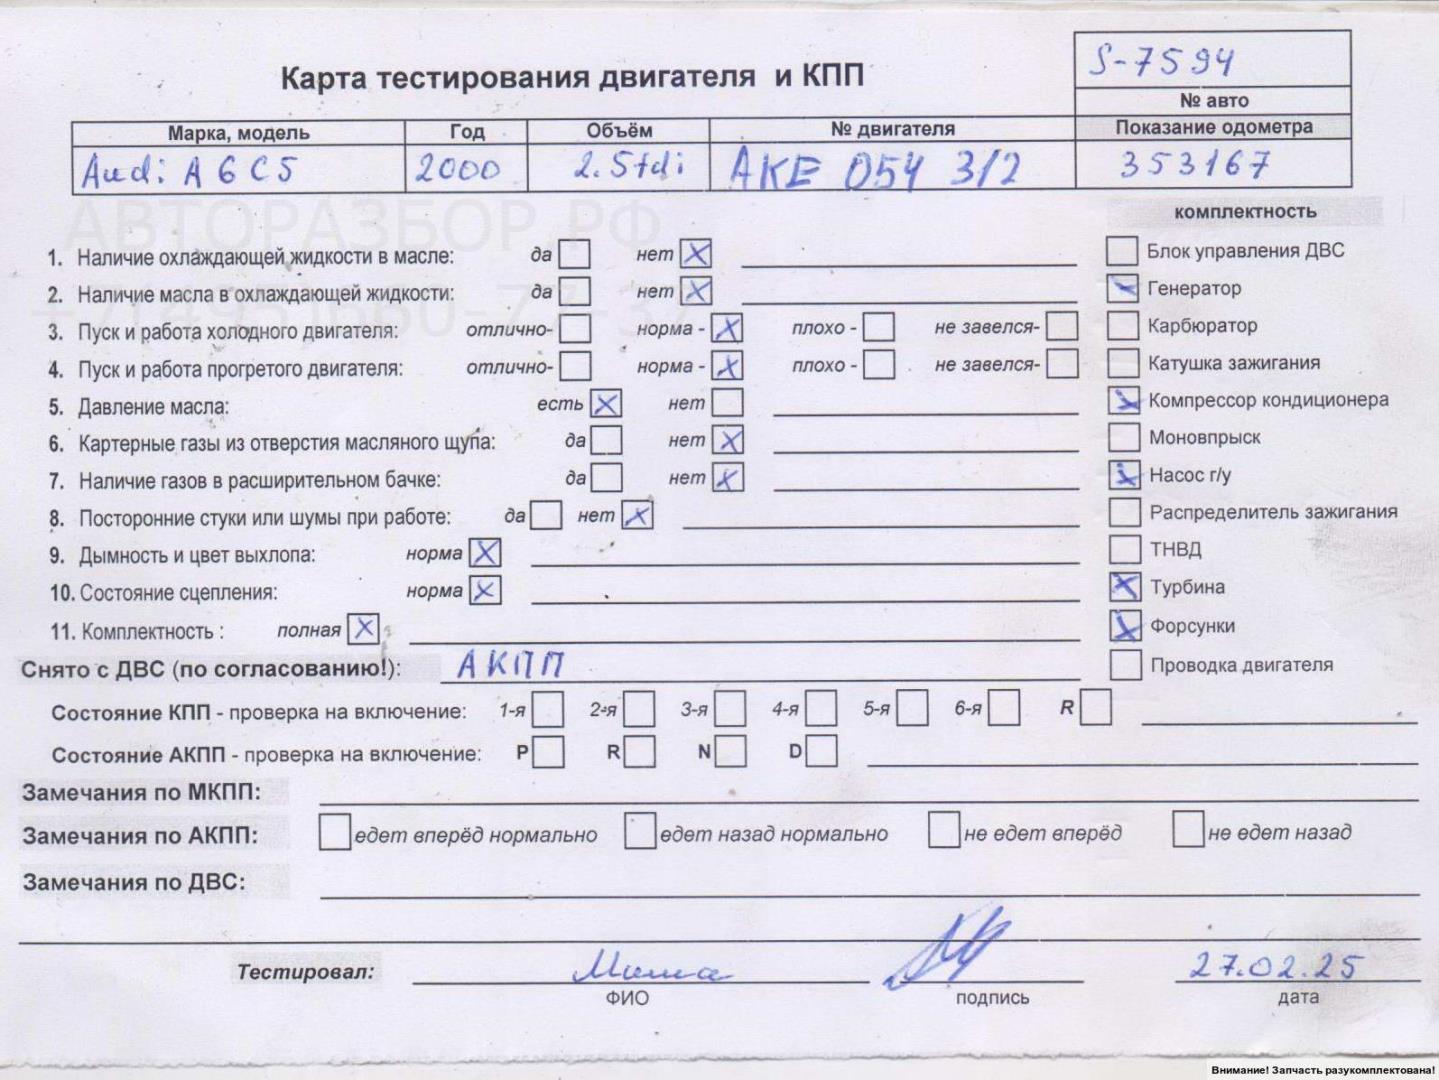 S-7594
Карта тестирования двигателя и КПП
№ авто
Марка, модель Год Объём № двигателя Показание одометра
Audi A6 C5 2000 2.5tdi AKE 054 312 353167
АВТОРАЗБОР.РФ
комплектность
1. Наличие охлаждающей жидкости в масле: да нет X
Блок управления ДВС
2. Наличие масла в охлаждающей жидкости: да нет X
Генератор
3. Пуск и работа холодного двигателя: отлично- норма - X плохо - не завелся-
Карбюратор
4. Пуск и работа прогретого двигателя: отлично- норма - X плохо - не завелся-
Катушка зажигания
5. Давление масла: есть X нет
Компрессор кондиционера
6. Картерные газы из отверстия масляного щупа: да нет X
Моновпрыск
7. Наличие газов в расширительном бачке: да нет X
Насос г/у
8. Посторонние стуки или шумы при работе: да нет X
Распределитель зажигания
9. Дымность и цвет выхлопа: норма X
ТНВД
10. Состояние сцепления: норма X
Турбина
11. Комплектность : полная X
Форсунки
Снято с ДВС (по согласованию!): АКПП
Проводка двигателя
Состояние КПП - проверка на включение: 1-я 2-я 3-я 4-я 5-я 6-я R
Состояние АКПП - проверка на включение: P R N D
Замечания по МКПП:
Замечания по АКПП: едет вперёд нормально едет назад нормально не едет вперёд не едет назад
Замечания по ДВС:
Тестировал: Миша 27.02.25
ФИО подпись дата
Внимание! Запчасть разукомплектована!